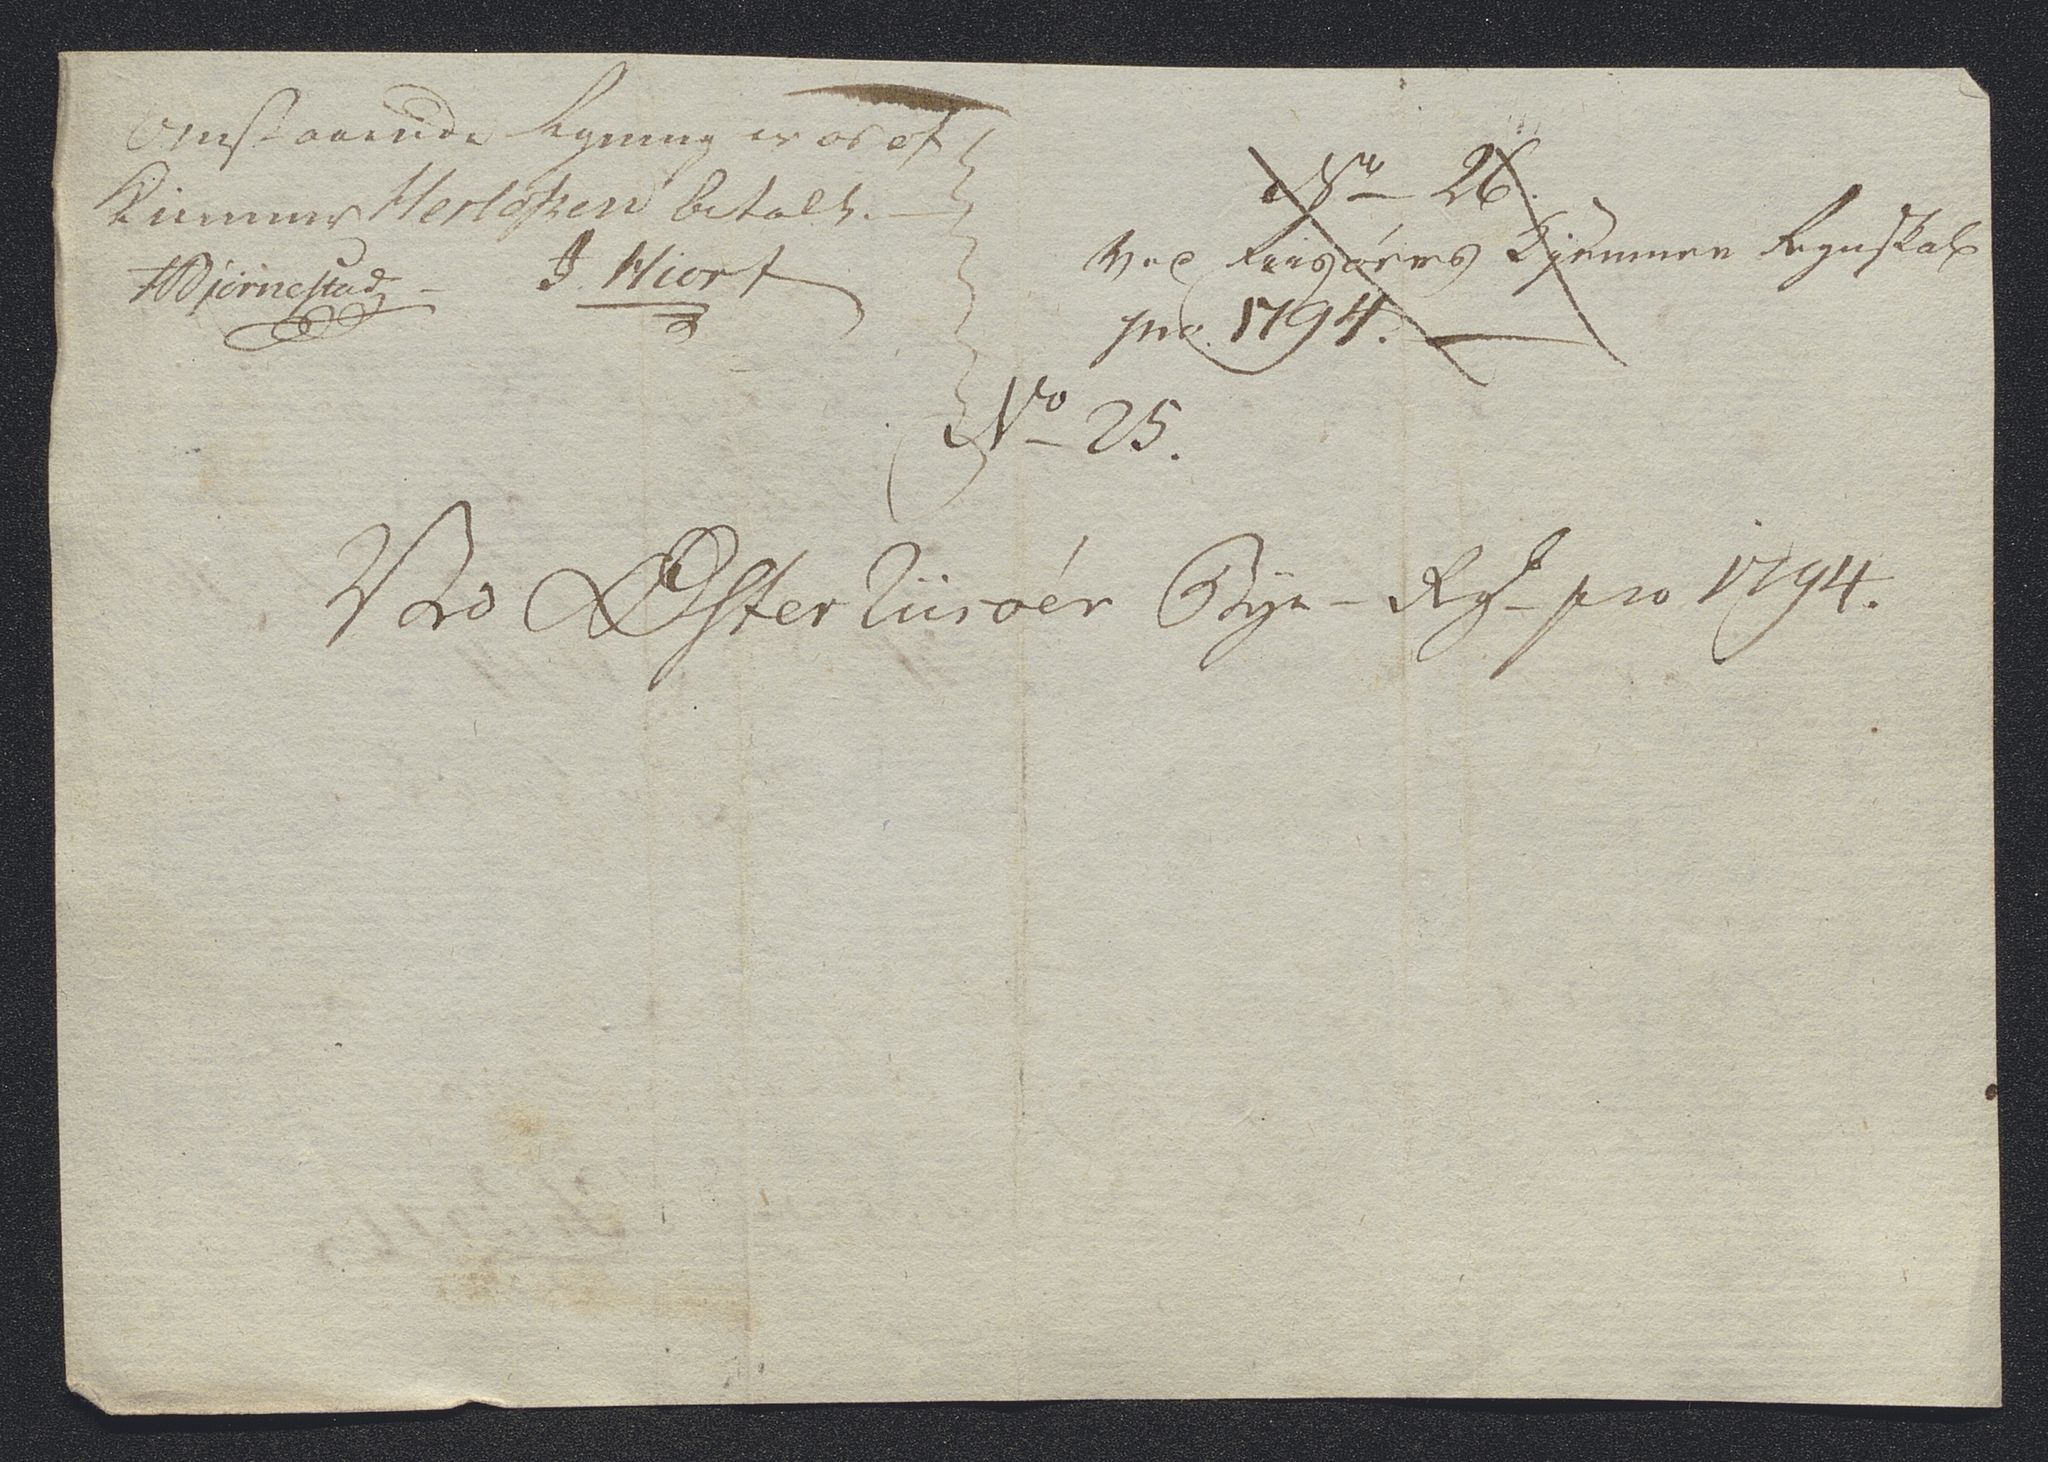 Omstaaende Regning er os af
Kiemner Herlofsen betalt. —
HBjørnestad — J. Hiort
No 26.
Ved Riisøers Kjemner Regnskab
pro. 1794. —
No 25.
Ved Øster Riisøer Bye - Rgs - pro 1794.